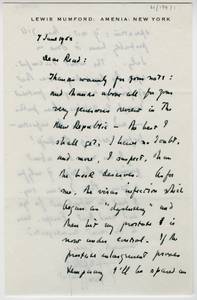 LEWIS MUMFORD: AMENIA: NEW YORK
7 June 1962
Dear Read:
Thanks warmly for your note:
and thanks above all for your
very generous review in The
New Republic — the best I
shall get, I have no doubt,
and more, I suspect, than
the book deserves. As for
me, the virus infection which
began as "dysentery" and
then hit my prostate is
now under control. If the
prostate enlargement proves
temporary I'll be spared an